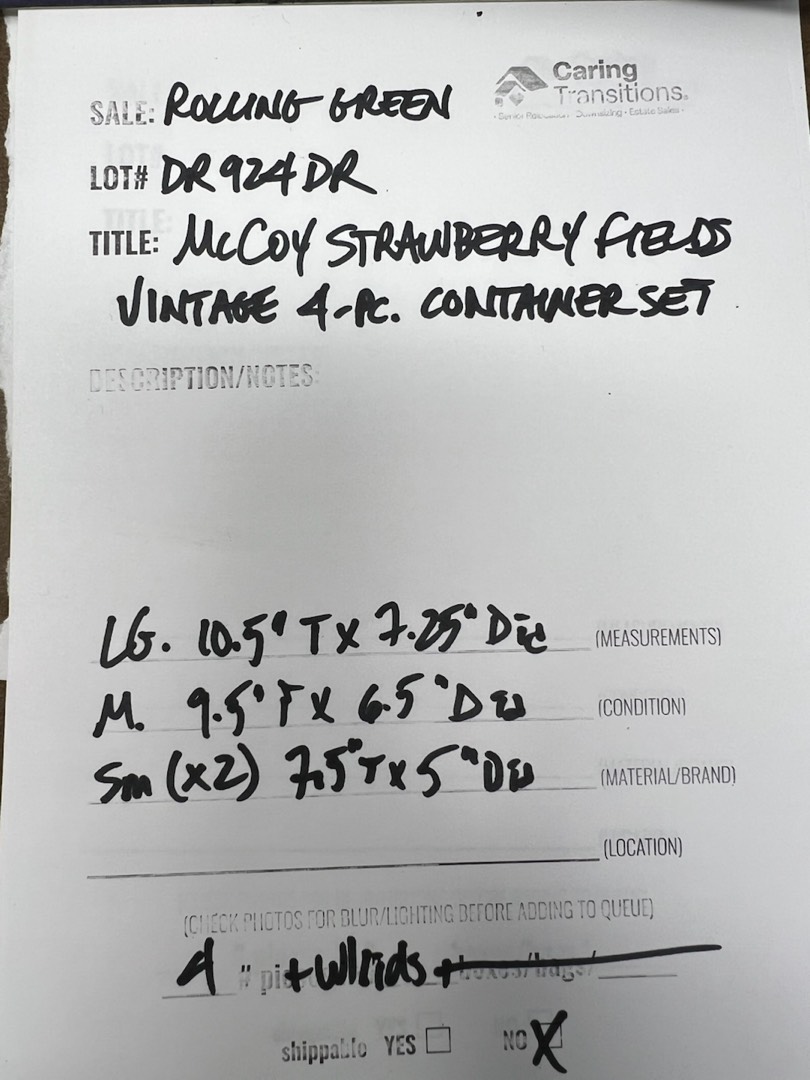 Caring
Transitions®
SALE: ROLLING GREEN
LOT# DR924DR
TITLE: McCOY STRAWBERRY FIELDS
VINTAGE 4-PC. CONTAINER SET
DESCRIPTION/NOTES:
LG. 10.5" T X 7.25" Dia (MEASUREMENTS)
M. 9.5" T X 6.5" Dia (CONDITION)
Sm (x2) 7.5" T x 5" Dia (MATERIAL/BRAND)
(LOCATION)
(CHECK PHOTOS FOR BLUR/LIGHTING BEFORE ADDING TO QUEUE)
4 # + w/lids + boxes/bags/
shippable YES NO X